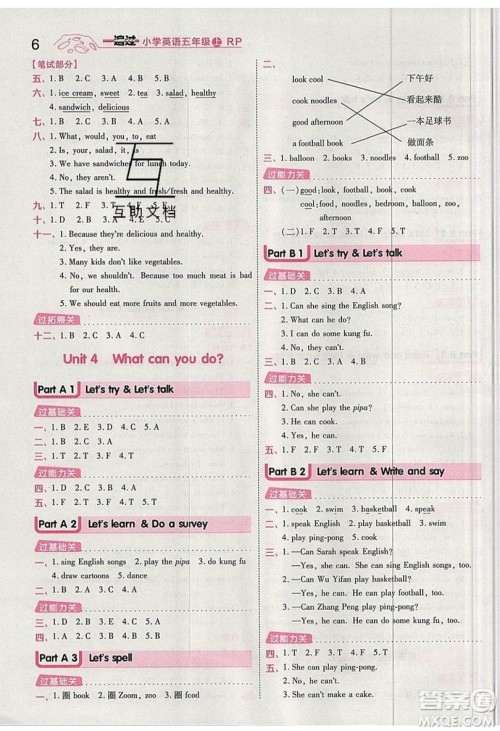 6 一遍过 小学英语五年级 上 RP
【笔试部分】
五、1. B 2. C 3. A 4. B 5. B
六、1. ice cream, sweet 2. tea 3. salad, healthy
4. sandwich, delicious
七、1. B 2. B 3. B 4. A 5. C
八、1. What, would, you, to, eat
2. Is, your, salad, it, is
3. We have sandwiches for lunch today.
4. It is
5. The salad is healthy and fresh/fresh and healthy.
九、1. T 2. F 3. F 4. T 5. F
十、1. D 2. C 3. E 4. A 5. B
互助文档
十一、1. Because they're delicious and healthy.
2. Yes, they are.
3. Many kids don't like vegetables.
4. No, we shouldn't. Because too much meat is bad
for our health.
5. We should eat more fruits and more vegetables.
过拓展关
十二、1. B 2. D 3. A 4. C
Unit 4 What can you do?
Part A 1 Let's try & Let's talk
过基础关
一、1. B 2. E 3. A 4. D 5. C
二、1. B 2. A 3. B 4. C
三、1. D 2. E 3. A 4. C 5. B
过能力关
四、1. D 2. B 3. C 4. A
五、1. F 2. T 3. F 4. T 5. T
Part A 2 Let's learn & Do a survey
过基础关
一、1. sing English songs 2. play the pipa 3. do kung fu
4. draw cartoons 5. dance
二、1. B 2. A 3. B 4. B
三、1. B 2. D 3. A 4. E 5. C
过能力关
四、1. B 2. E 3. A 4. C 5. D
Part A 3 Let's spell
过基础关
一、1. 圈 book 2. 圈 Zoom, zoo 3. 圈 food
二、
look cool 下午好
cook noodles 看起来酷
good afternoon 一本足球书
a football book 做面条
三、1. balloon 2. books 3. noodles 4. football
过能力关
四、(一) good: look, football, wood, book
food: cool, noodles, bedroom, balloon, zoo,
classroom
(二) 1. F 2. F 3. T 4. T 5. F
Part B 1 Let's try & Let's talk
过基础关
一、1. D 2. C 3. A 4. B
二、1. Can she sing the English song?
2. No, I can't.
3. I can do some kung fu.
三、1. B 2. D 3. A 4. C
过能力关
四、1. No, she can't.
2. Can she play the pipa?
3. Can he do some kung fu?
4. No, they can't.
五、1. F 2. F 3. T 4. T 5. F
Part B 2 Let's learn & Write and say
过基础关
一、1. cook 2. swim 3. basketball 4. speak
二、1. speak English 2. play basketball 3. swim
4. cook 5. play ping-pong
三、1. —Can Sarah speak English?
—Yes, she can. She can speak English.
2. —Can Wu Yifan play basketball?
—Yes, he can. He can play basketball.
3. —Can Zhang Peng play ping-pong?
—No, he can't. He can cook.
过能力关
四、1. T 2. F 3. T 4. T 5. F
五、1. She can play ping-pong.
2. Yes, he can.
3. No, she can't.
4. He can swim and play ping-pong.
5. Yes. She can make a cake.
答案圈
MXQE.COM